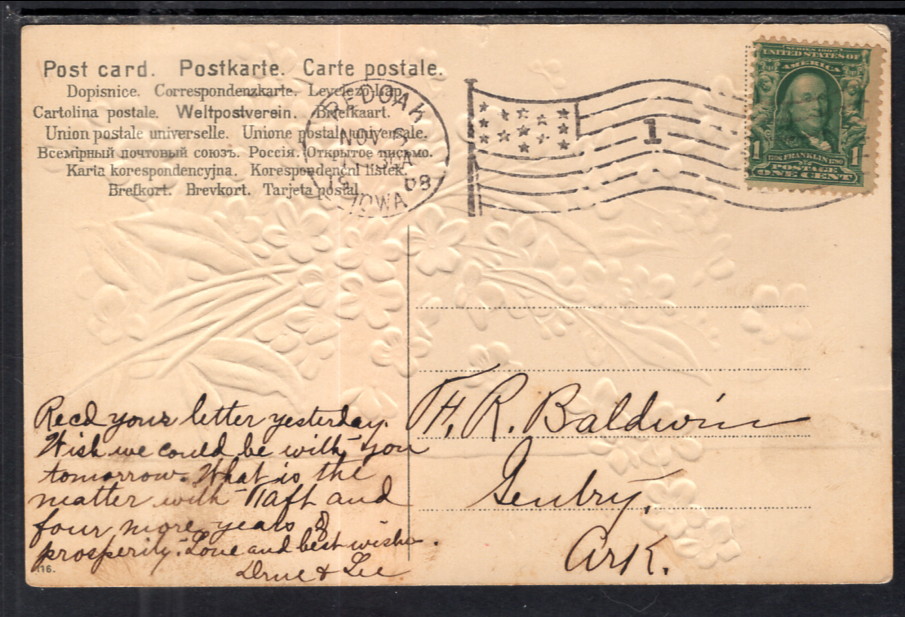 Post card. Postkarte. Carte postale.
Dopisnice. Correspondenzkarte. Levelező-Lap.
Cartolina postale. Weltpostverein. Briefkaart.
Union postale universelle. Unione postale universale.
Всемірный почтовый союзъ. Россія. Открытое письмо.
Karta korespondencyjna. Korespondenční lístek.
Brefkort. Brevkort. Tarjeta postal.
RED OAK
NOV
08
IOWA
1
SERIES 1902
UNITED STATES OF
AMERICA
FRANKLIN
1 1
POSTAGE
ONE CENT
Recd your letter yesterday.
Wish we could be with you
tomorrow. What is the
matter with Taft and
four more years of
prosperity. Love and best wishes.
& Lee
116.
H. R. Baldwin
Gentry.
Ark.